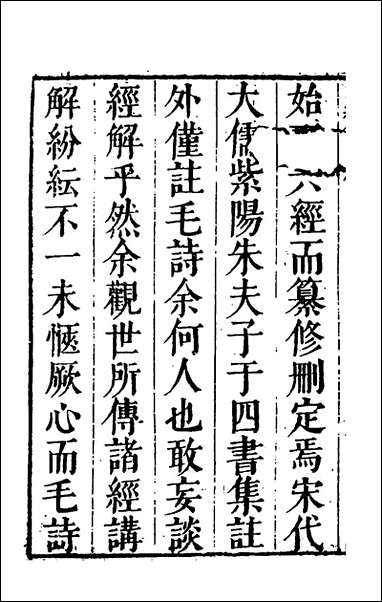 始六經而纂修刪定焉宋代
大儒紫陽朱夫子于四書集註
外僅註毛詩余何人也敢妄談
經解乎然余觀世所傳諸經講
解紛紜不一未愜厥心而毛詩